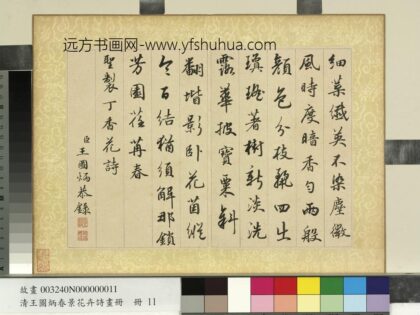 远方书画网-www.yfshuhua.com
細蕋攢英不染塵微
風時度暗香勻兩般
顏色分枝艷四出
瓊瑤著樹新淡洗
露華披寶粟斜
翻堦影臥花茵縱
令百結猶須解那鎖
芳園荏苒春
聖製丁香花詩
臣王圖炳恭錄
故畫 003240N000000011
清王圖炳春景花卉詩畫冊 冊 11